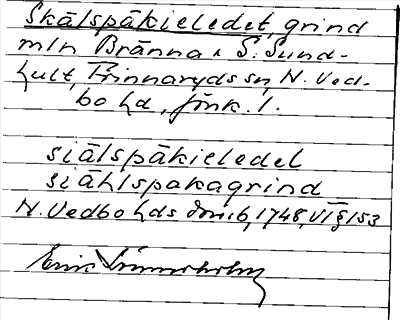 Skälspåkieledet, grind
mln Bränna o S. Sund-
hult, Frinnaryds sn, N. Ved-
bo hd, Jönk. l.
siälspåkieledel
siählspakagrind
N. Vedbo hds domb, 1748, VI § 153